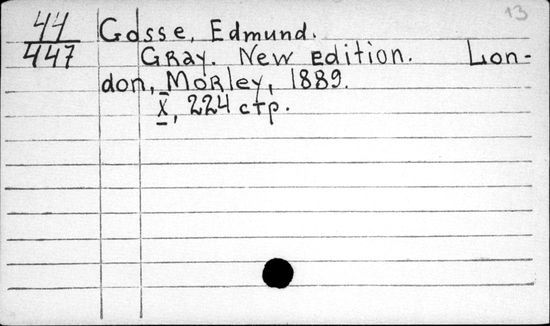 13
44 Gosse, Edmund.
447 Gray. New edition. Lon-
don, Morley, 1889.
X, 224 стр.